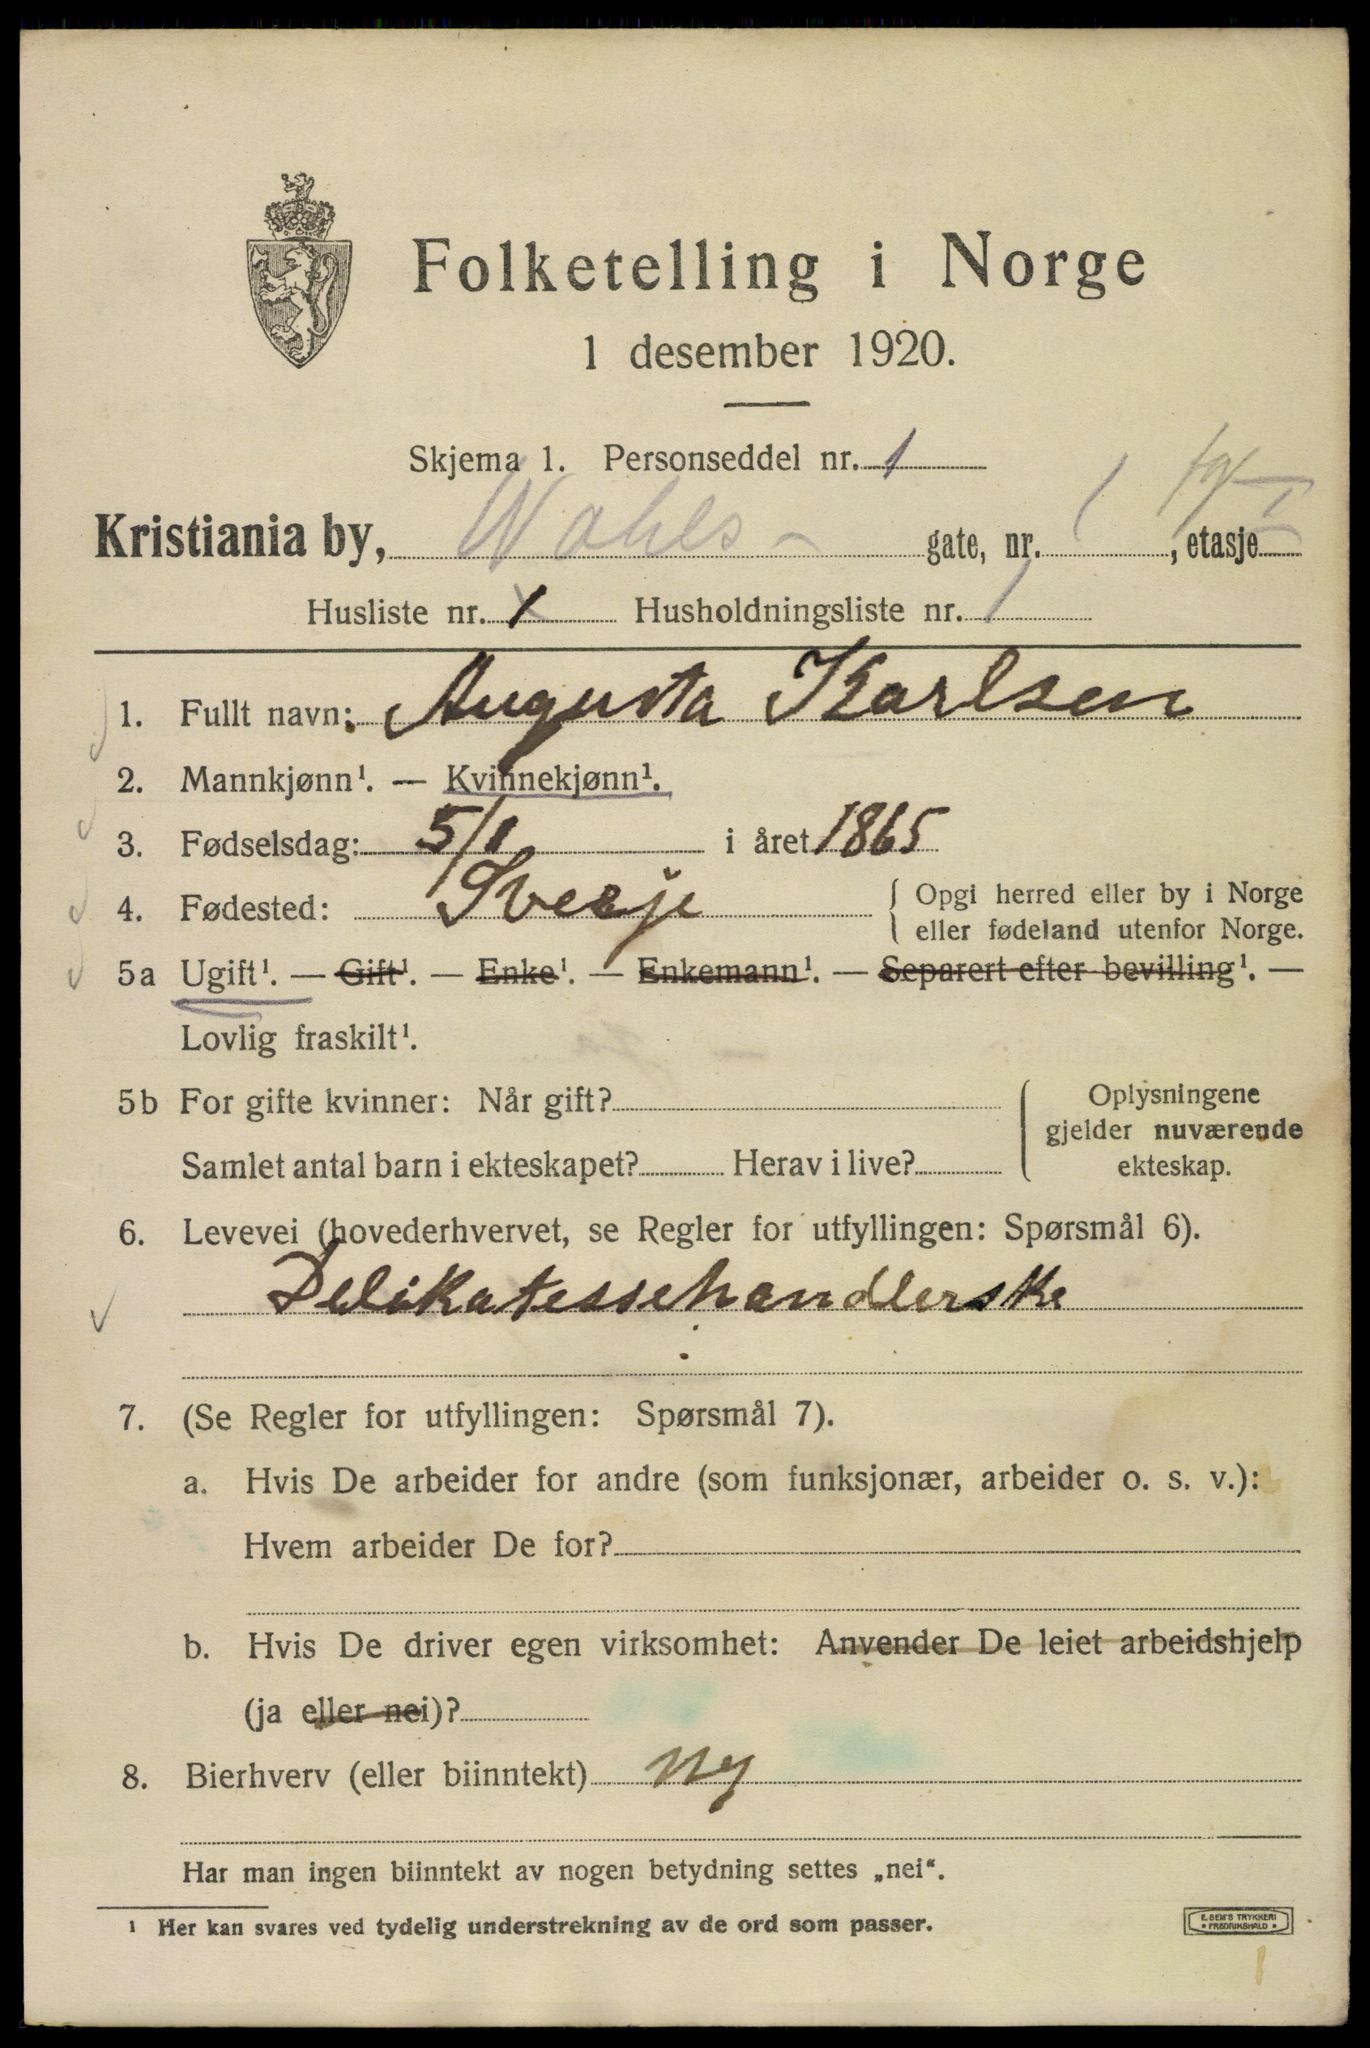 Folketelling i Norge
1 desember 1920.
Skjema 1. Personseddel nr. 1
Kristiania by, Wahls - gate, nr. 1, etasje I
Husliste nr. 1 Husholdningsliste nr. 1
1. Fullt navn: Augusta Karlsen
2. Mannkjønn¹. — Kvinnekjønn¹.
3. Fødselsdag: 5/1 i året 1865
4. Fødested: Sverje { Opgi herred eller by i Norge
eller fødeland utenfor Norge.
5a Ugift¹. — Gift¹. — Enke¹. — Enkemann¹. — Separert efter bevilling¹. —
Lovlig fraskilt¹.
5b For gifte kvinner: Når gift? { Oplysningene
gjelder nuværende
Samlet antal barn i ekteskapet? Herav i live? ekteskap.
6. Levevei (hovederhvervet, se Regler for utfyllingen: Spørsmål 6).
Delikatessehandlerske
7. (Se Regler for utfyllingen: Spørsmål 7).
a. Hvis De arbeider for andre (som funksjonær, arbeider o. s. v.):
Hvem arbeider De for?
b. Hvis De driver egen virksomhet: Anvender De leiet arbeidshjelp
(ja eller nei)?
8. Bierhverv (eller biinntekt) ny
Har man ingen biinntekt av nogen betydning settes „nei“.
¹ Her kan svares ved tydelig understrekning av de ord som passer.
E. SEM'S TRYKKERI
• FREDRIKSHALD •
1